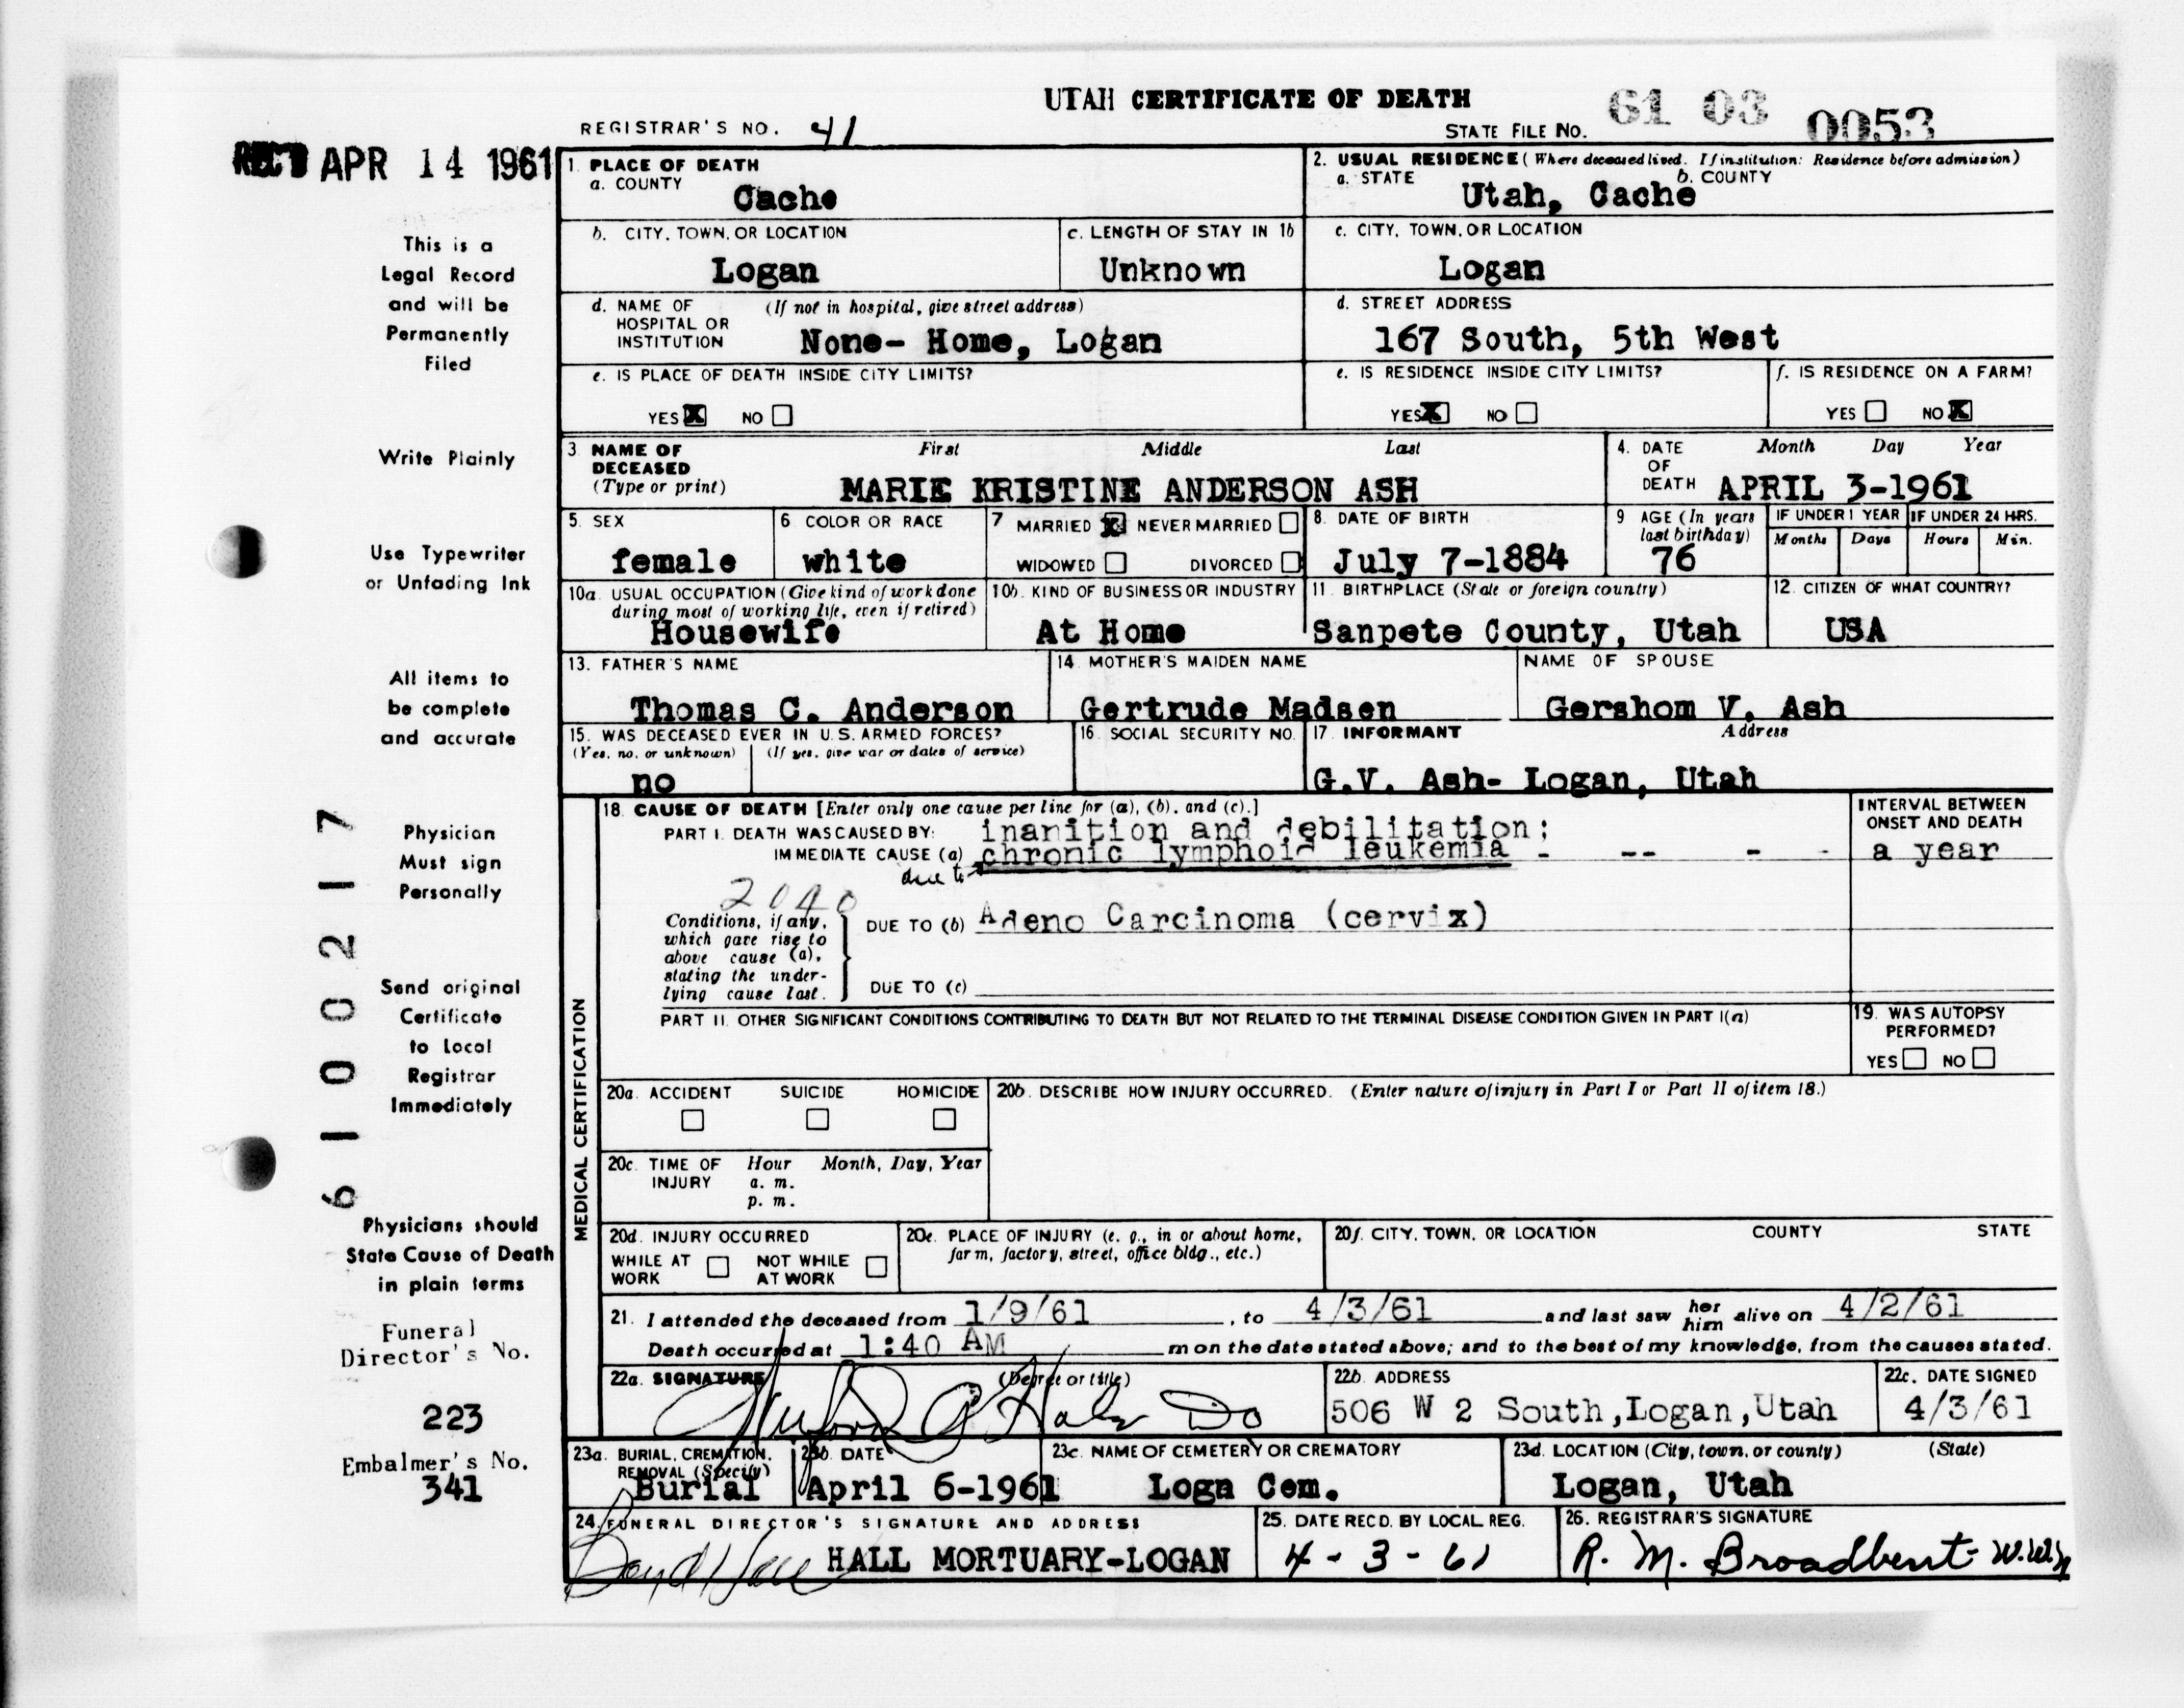 UTAH CERTIFICATE OF DEATH
REGISTRAR'S NO. 41
STATE FILE NO. 61 03 0053
REC'D APR 14 1961
This is a
Legal Record
and will be
Permanently
Filed
Write Plainly
Use Typewriter
or Unfading Ink
All items to
be complete
and accurate
Physician
Must sign
Personally
Send original
Certificate
to Local
Registrar
Immediately
Physicians should
State Cause of Death
in plain terms
Funeral
Director's No.
223
Embalmer's No.
341
6100217
1. PLACE OF DEATH
a. COUNTY
Cache
2. USUAL RESIDENCE (Where deceased lived. If institution: Residence before admission)
a. STATE b. COUNTY
Utah, Cache
b. CITY, TOWN, OR LOCATION
Logan
c. LENGTH OF STAY IN 1b
Unknown
c. CITY, TOWN, OR LOCATION
Logan
d. NAME OF (If not in hospital, give street address)
HOSPITAL OR
INSTITUTION None- Home, Logan
d. STREET ADDRESS
167 South, 5th West
e. IS PLACE OF DEATH INSIDE CITY LIMITS?
YES X NO
e. IS RESIDENCE INSIDE CITY LIMITS?
YES X NO
f. IS RESIDENCE ON A FARM?
YES NO X
3 NAME OF First Middle Last
DECEASED
(Type or print) MARIE KRISTINE ANDERSON ASH
4. DATE Month Day Year
OF
DEATH APRIL 3-1961
5. SEX
female
6 COLOR OR RACE
white
7 MARRIED X NEVER MARRIED
WIDOWED DIVORCED
8. DATE OF BIRTH
July 7-1884
9 AGE (In years
last birthday)
76
IF UNDER 1 YEAR
Months Days
IF UNDER 24 HRS.
Hours Min.
10a. USUAL OCCUPATION (Give kind of work done
during most of working life, even if retired)
Housewife
10b. KIND OF BUSINESS OR INDUSTRY
At Home
11. BIRTHPLACE (State or foreign country)
Sanpete County, Utah
12. CITIZEN OF WHAT COUNTRY?
USA
13. FATHER'S NAME
Thomas C. Anderson
14. MOTHER'S MAIDEN NAME
Gertrude Madsen
NAME OF SPOUSE
Gershom V. Ash
15. WAS DECEASED EVER IN U.S. ARMED FORCES?
(Yes, no, or unknown) (If yes, give war or dates of service)
no
16. SOCIAL SECURITY NO.
17. INFORMANT Address
G.V. Ash- Logan, Utah
MEDICAL CERTIFICATION
18. CAUSE OF DEATH [Enter only one cause per line for (a), (b), and (c).]
PART I. DEATH WAS CAUSED BY: inanition and debilitation;
IMMEDIATE CAUSE (a) chronic lymphoid leukemia - -- - -
due to
INTERVAL BETWEEN
ONSET AND DEATH
a year
2040
Conditions, if any,
which gave rise to
above cause (a),
stating the under-
lying cause last.
DUE TO (b) Adeno Carcinoma (cervix)
DUE TO (c)
PART II. OTHER SIGNIFICANT CONDITIONS CONTRIBUTING TO DEATH BUT NOT RELATED TO THE TERMINAL DISEASE CONDITION GIVEN IN PART I(a)
19. WAS AUTOPSY
PERFORMED?
YES NO
20a. ACCIDENT SUICIDE HOMICIDE
20b. DESCRIBE HOW INJURY OCCURRED. (Enter nature of injury in Part I or Part II of item 18.)
20c. TIME OF Hour Month, Day, Year
INJURY a. m.
p. m.
20d. INJURY OCCURRED
WHILE AT NOT WHILE
WORK AT WORK
20e. PLACE OF INJURY (e. g., in or about home,
farm, factory, street, office bldg., etc.)
20f. CITY, TOWN, OR LOCATION COUNTY STATE
21. I attended the deceased from 1/9/61, to 4/3/61 and last saw her him alive on 4/2/61
Death occurred at 1:40 AM m on the date stated above; and to the best of my knowledge, from the causes stated.
22a. SIGNATURE (Degree or title)
DO
22b. ADDRESS
506 W 2 South,Logan,Utah
22c. DATE SIGNED
4/3/61
23a. BURIAL, CREMATION,
REMOVAL (Specify)
Burial
23b. DATE
April 6-1961
23c. NAME OF CEMETERY OR CREMATORY
Logn Cem.
23d. LOCATION (City, town, or county) (State)
Logan, Utah
24. FUNERAL DIRECTOR'S SIGNATURE AND ADDRESS
HALL MORTUARY-LOGAN
25. DATE RECD. BY LOCAL REG.
4-3-61
26. REGISTRAR'S SIGNATURE
R. M. Broadbent